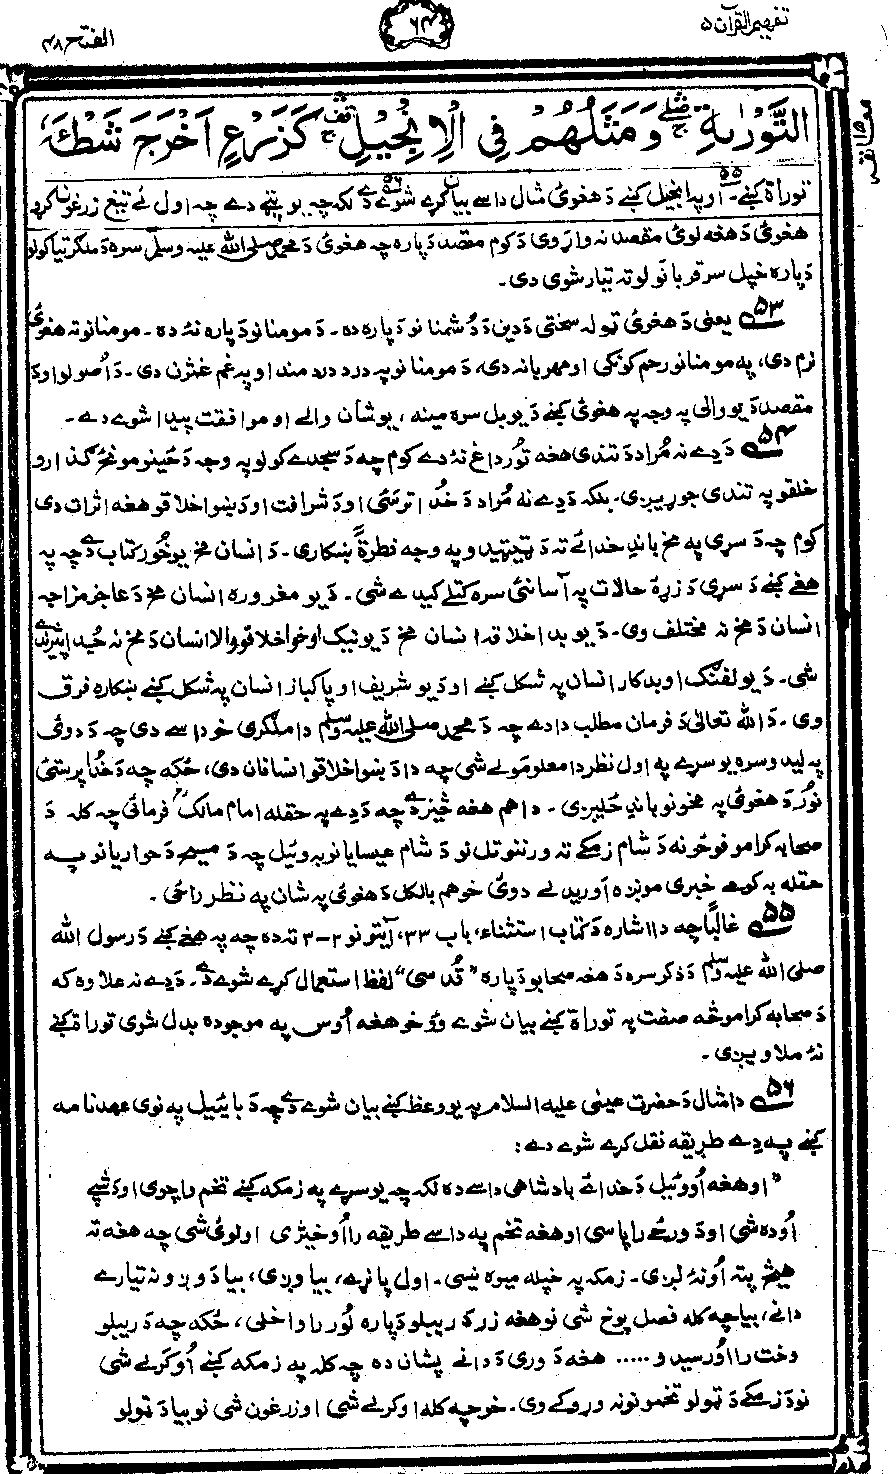 تفہیم القرآن ۵
۶۴
الفتح ۴۸
التَّوْرٰىةِ ۛۖ وَمَثَلُهُمْ فِي الْاِنْجِيْلِ ۛۚ كَزَرْعٍ اَخْرَجَ شَطْـَٔهٗ
معانقه ۱۵
توراة کښے۔ ۵۵ او په انجیل کښے دَ هغوئ مثال داسے بیان کړے شوے دے ۵۶ لکه چه یو پټے دے چه اول ئے تیغ زرغون کړو
هغوئ دَ هغه لوئ مقصد نه واړوی دَ کوم مقصد دَپاره چه هغوئ دَ محمد صلی الله علیه وسلم سره دَ ملګرتیا کولو
دَپاره خپل سر قربانولو ته تیار شوی دی۔
۵۳ یعنی دَ هغوئ ټوله سختی دَ دین دَ دُشمنانو دَپاره ده۔ دَ مومنانو دَپاره نۀ ده۔ مومنانو ته هغوئ
نرم دی، په مومنانو رحم کونکی او مهربانه دی، دَ مومنانو په درد درد مند او په غم غمژن دی۔ دَ اُصولو او دَ
مقصد دَ یو والی په وجه په هغوئ کښے دَ یو بل سره مینه، یو شان والے او موافقت پیدا شوے دے۔
۵۴ دَ دے نه مُراد دَ تندی هغه تور داغ نۀ دے کوم چه دَ سجدے کولو په وجه دَ ځینو مونځ ګذارو
خلقو په تندی جوړیږی۔ بلکه دَ دے نه مُراد دَ خُدا ترسئ او دَ شرافت او دَ ښو اخلاقو هغه اثرات دی
کوم چه دَ سړی په مخ باندِ خدائے ته دَ ټیټیدو په وجه فطرةً ښکاری۔ دَ انسان مخ یو خُور کتاب دے چه په
هغے کښے دَ سړی دَ زړۀ حالات په آسانئ سره کتلے کیدے شی۔ دَ یو مغروره انسان مخ دَ عاجز مزاجه
انسان دَ مخ نه مختلف وی۔ دَ یو بد اخلاقه انسان مخ دَ یو نیک او خواخلاقو والا انسان دَ مخ نه جُدا پیژندے
شی۔ دَ یو لفنګ او بدکار انسان په شکل کښے او دَ یو شریف او پاکباز انسان په شکل کښے ښکاره فرق
وی۔ دَ الله تعالیٰ دَ فرمان مطلب دا دے چه دَ محمد صلی الله علیه وسلم دا ملګری خو داسے دی چه دَ دوئ
په لیدو سره یو سړے په اول نظر دا معلومولے شی چه دا دَ ښو اخلاقو انسانان دی، ځکه چه دَ خُدا پرستئ
نُور دَ هغوئ په مخونو باندِ ځلیږی۔ دا هم هغه څیز دے چه دَ دے په حقله امام مالکؒ فرمائی چه کله دَ
صحابه کرامو فوځونه دَ شام زمکے ته ورننوتل نو دَ شام عیسایانو به وئیل چه دَ مسیح دَ حواریانو په
حقله به کومے خبری مونږه اوریدلے دوئ خو هم بالکل دَ هغوئ په شان په نظر راځی۔
۵۵ غالباً چه دا اشاره دَ کتاب استثناء، باب ۳۳، آیتونو ۲-۳ ته ده چه په هغے کښے دَ رسول الله
صلی الله علیه وسلم دَ ذکر سره دَ هغه صحابو دَپاره “قُدسی” لفظ استعمال کړے شوے دے۔ دَ دے نه علاوه که
دَ صحابه کرامو څه صفت په توراة کښے بیان شوے وُو خو هغه اُوس په موجوده بدل شوی توراة کښے
نۀ ملاویږی۔
۵۶ دا مثال دَ حضرت عیسیٰ علیه السلام په یو وعظ کښے بیان شوے دے چه دَ بائیبل په نوی عهدنامه
کښے په دے طریقه نقل کړے شوے دے:
“او هغه اُووئیل دَ خدائے بادشاهی داسے ده لکه چه یو سړے په زمکه کښے تخم واچوی او دَ شپے
اُوده شی او دَ ورځے راپاسی او هغه تخم په داسے طریقه رااُوخیژی او لوئ شی چه هغه ته
هیڅ پته اُونۀ لږی۔ زمکه په خپله میوه نیسی۔ اول پاڼے، بیا وږی، بیا دَ وږو نه تیارے
دانے، بیا چه کله فصل پوخ شی نو هغه زر دَ ریبلو دَپاره لُور راواخلی، ځکه چه دَ ریبلو
وخت رااُورسیدو..... هغه دَ وری دَ دانے پشان ده چه کله په زمکه کښے اُوکرلے شی
نو دَ زمکے دَ ټولو تخمونونه وړوکے وی۔ خو چه کله اوکرلے شی او زرغون شی نو بیا دَ ټولو